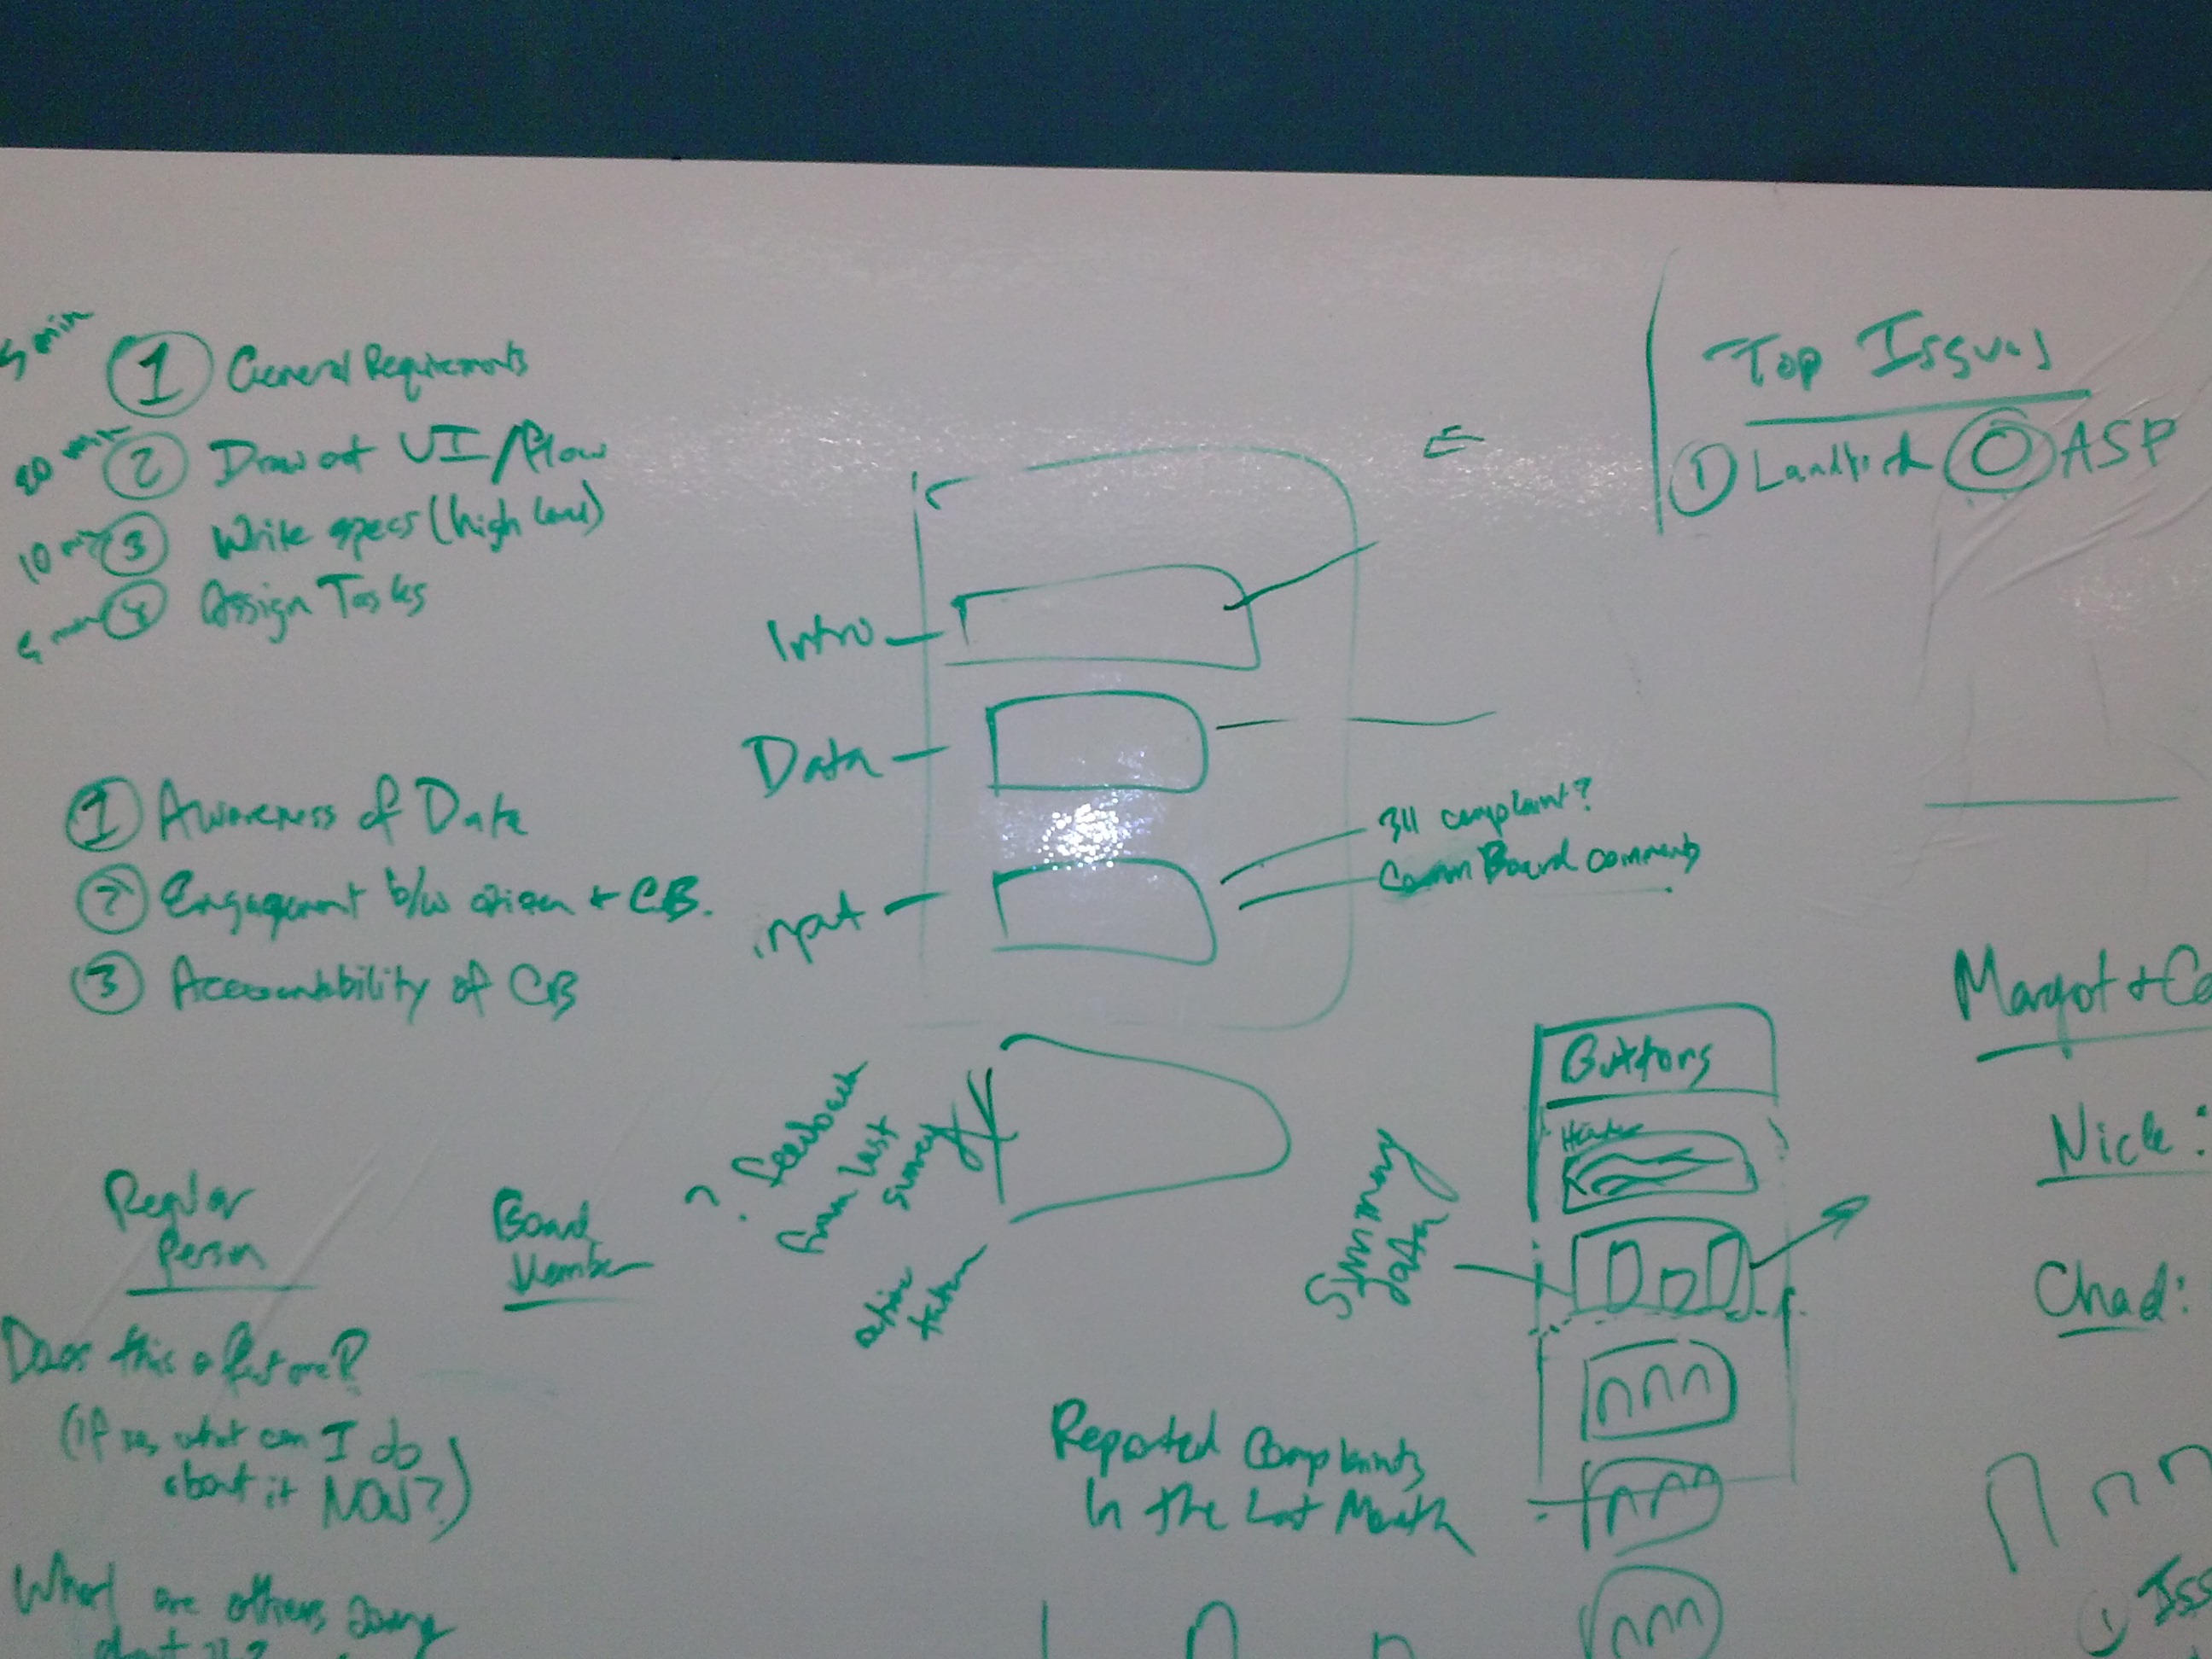 5 min ① General Requirements
② Draw out UI/flow
10 min ③ Write specs (high level)
5 min ④ Assign Tasks
① Awareness of Data
② Engagement b/w citizen + CB.
③ Accountability of CB
Regular
Person
Does this affect me?
(if so, what can I do
about it NOW?)
What are others doing
about it?
Board
Member
Intro
Data
input
311 complaint?
Comm Board comments
? feedback
from last
survey
action
taken
Top Issues
① Landlord
ASP
Buttons
Header
Summary
Data
Reported Complaints
In the Last Month
Margot +
Nick:
Chad:
① Iss